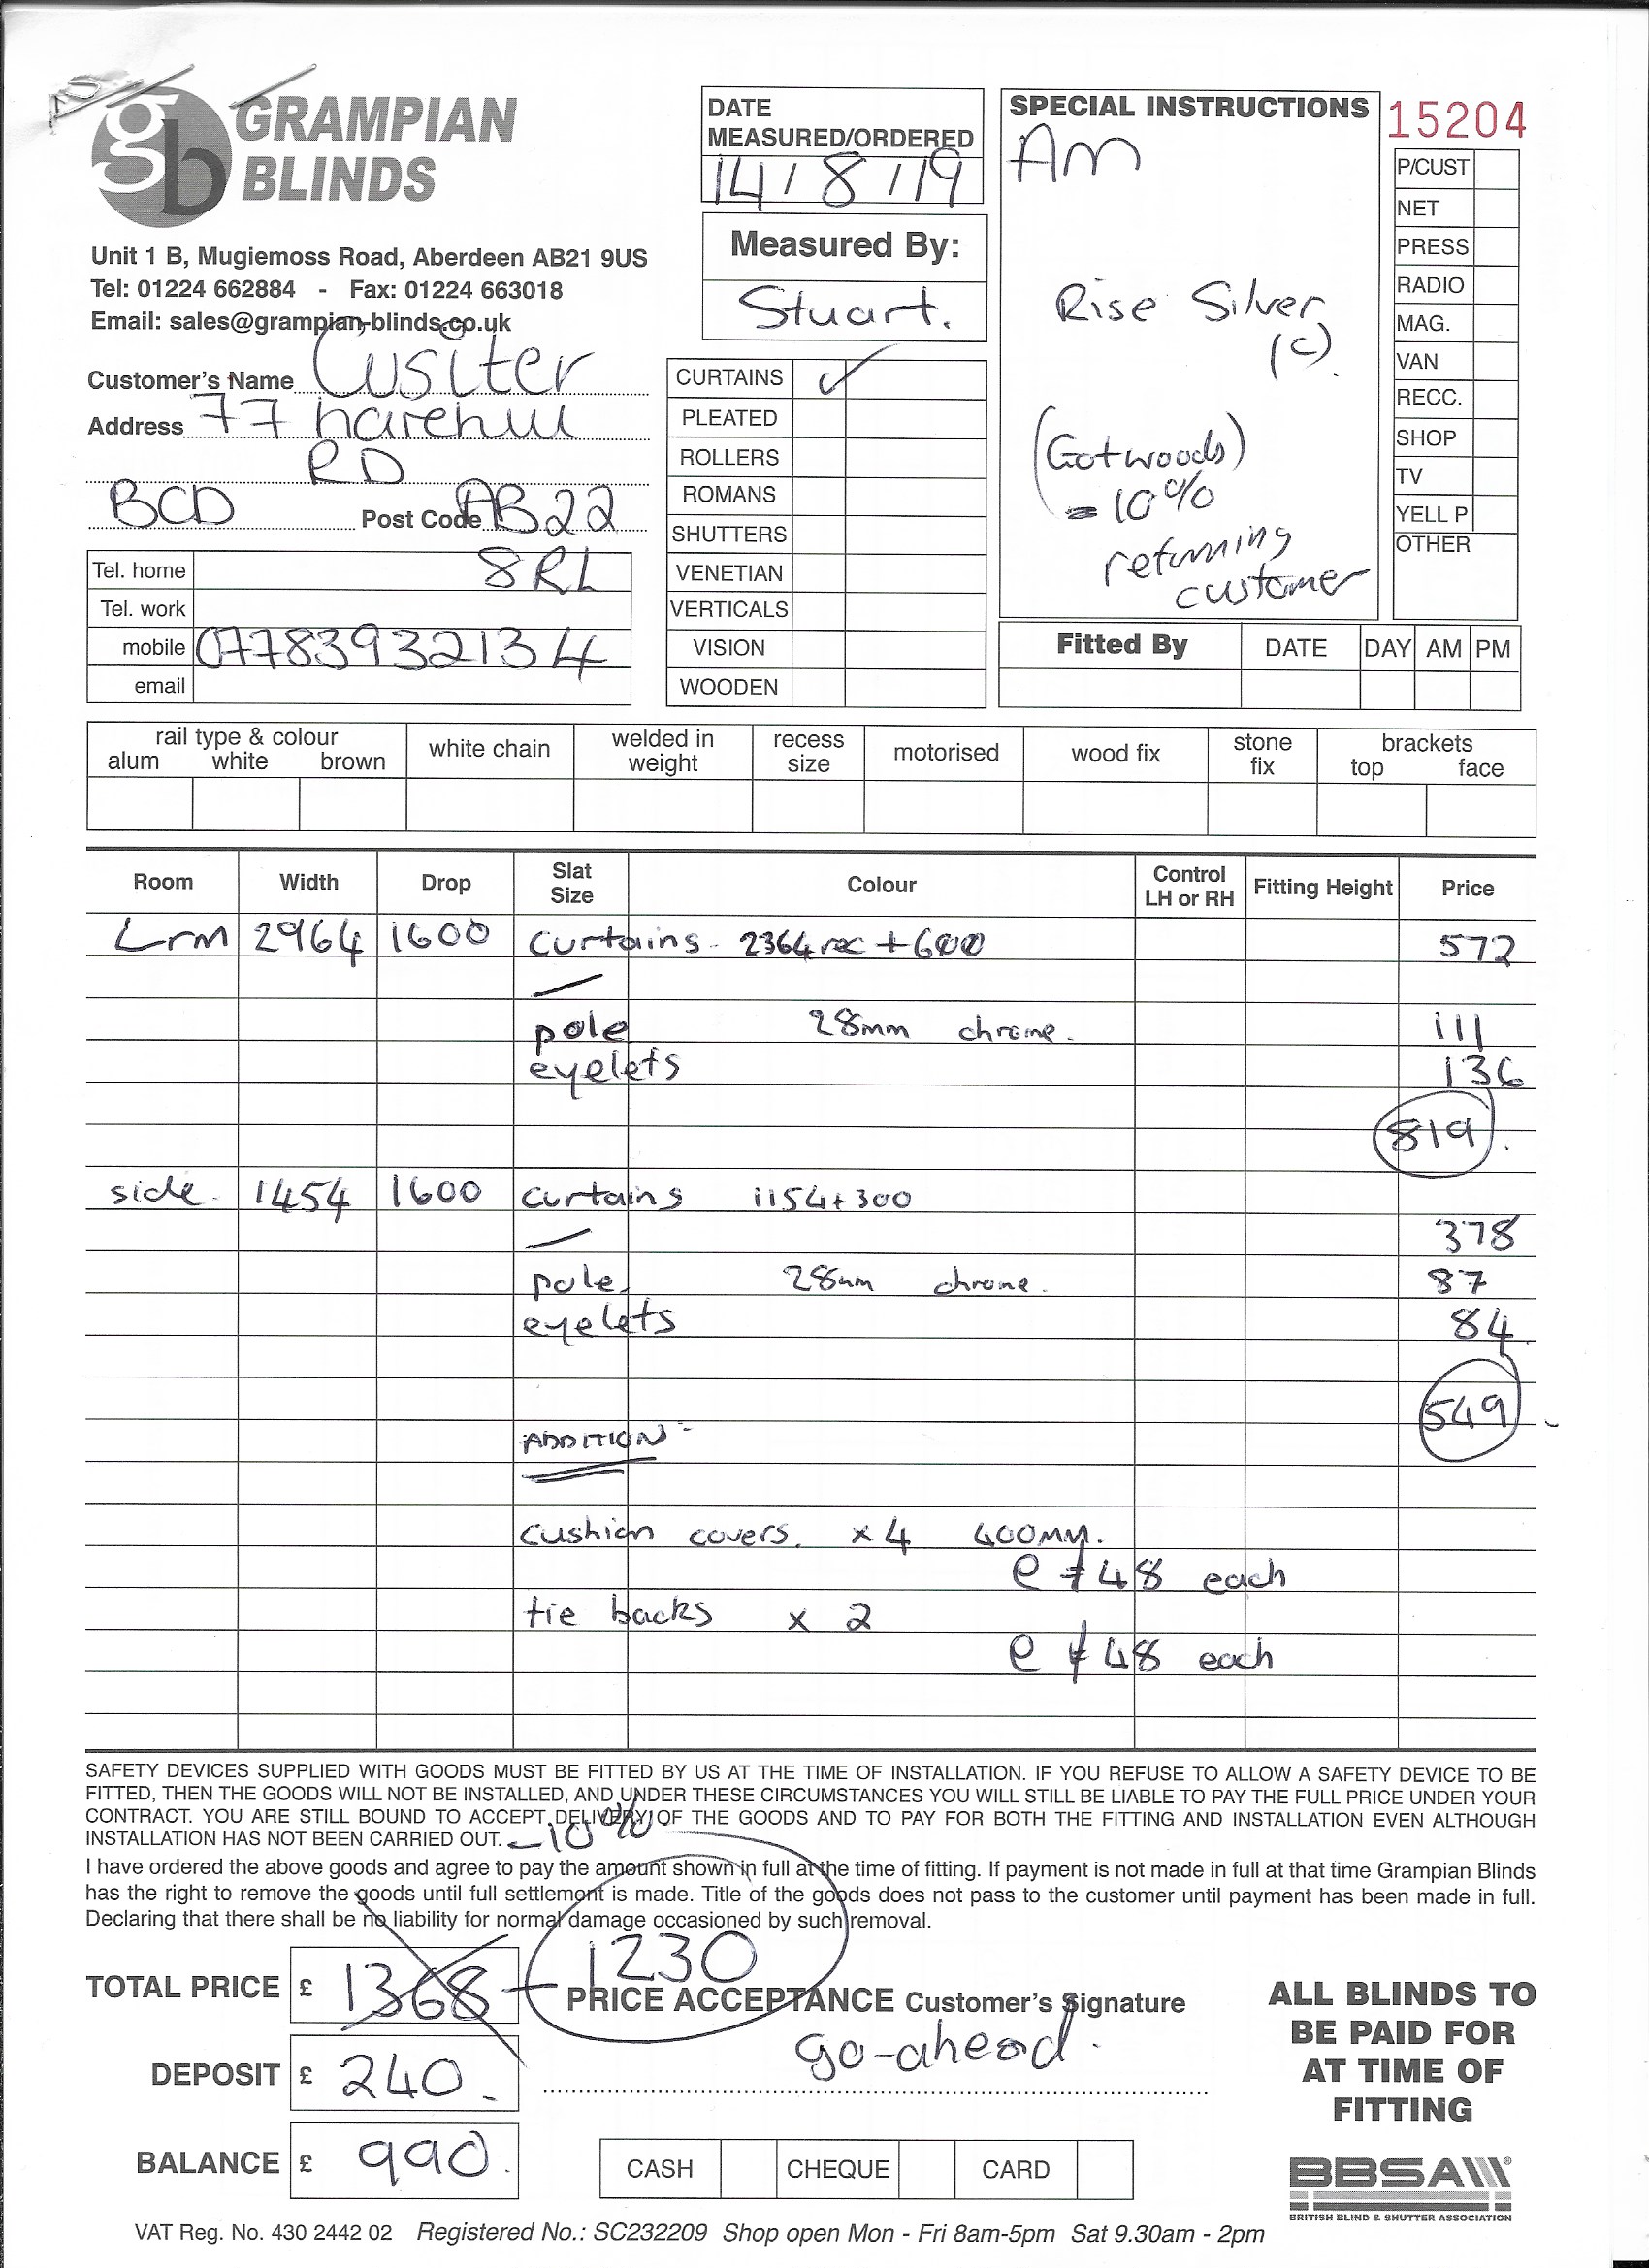 GRAMPIAN
BLINDS
gb
Unit 1 B, Mugiemoss Road, Aberdeen AB21 9US
Tel: 01224 662884 - Fax: 01224 663018
Email: sales@grampian-blinds.co.uk
Customer's Name Cusiter
Address 77 harehill
RD
BCD Post Code AB22
8RL
Tel. home
Tel. work
mobile 07783932134
email
DATE
MEASURED/ORDERED
14/8/19
Measured By:
Stuart.
CURTAINS ✓
PLEATED
ROLLERS
ROMANS
SHUTTERS
VENETIAN
VERTICALS
VISION
WOODEN
SPECIAL INSTRUCTIONS
AM
Rise Silver
(c).
(Gotwoods)
- 10%
returning
customer
15204
P/CUST
NET
PRESS
RADIO
MAG.
VAN
RECC.
SHOP
TV
YELL P
OTHER
Fitted By DATE DAY AM PM
rail type & colour
alum white brown
white chain
welded in
weight
recess
size
motorised
wood fix
stone
fix
brackets
top face
Room Width Drop Slat Size Colour Control LH or RH Fitting Height Price
Lrm 2964 1600 curtains - 2364 rec + 600 572
pole 28mm chrome. 111
eyelets 136
819.
side. 1454 1600 curtains 1154+300
378
pole 28mm chrome. 87
eyelets 84.
549
ADDITION -
cushion covers. x 4 400MM.
@ £48 each
tie backs x 2
@ £48 each
SAFETY DEVICES SUPPLIED WITH GOODS MUST BE FITTED BY US AT THE TIME OF INSTALLATION. IF YOU REFUSE TO ALLOW A SAFETY DEVICE TO BE
FITTED, THEN THE GOODS WILL NOT BE INSTALLED, AND UNDER THESE CIRCUMSTANCES YOU WILL STILL BE LIABLE TO PAY THE FULL PRICE UNDER YOUR
CONTRACT. YOU ARE STILL BOUND TO ACCEPT DELIVERY OF THE GOODS AND TO PAY FOR BOTH THE FITTING AND INSTALLATION EVEN ALTHOUGH
INSTALLATION HAS NOT BEEN CARRIED OUT. -10%
I have ordered the above goods and agree to pay the amount shown in full at the time of fitting. If payment is not made in full at that time Grampian Blinds
has the right to remove the goods until full settlement is made. Title of the goods does not pass to the customer until payment has been made in full.
Declaring that there shall be no liability for normal damage occasioned by such removal.
TOTAL PRICE £ 1368 1230
PRICE ACCEPTANCE Customer's Signature
go-ahead.
DEPOSIT £ 240.
BALANCE £ 990.
CASH CHEQUE CARD
ALL BLINDS TO
BE PAID FOR
AT TIME OF
FITTING
BBSA
BRITISH BLIND & SHUTTER ASSOCIATION
VAT Reg. No. 430 2442 02 Registered No.: SC232209 Shop open Mon - Fri 8am-5pm Sat 9.30am - 2pm